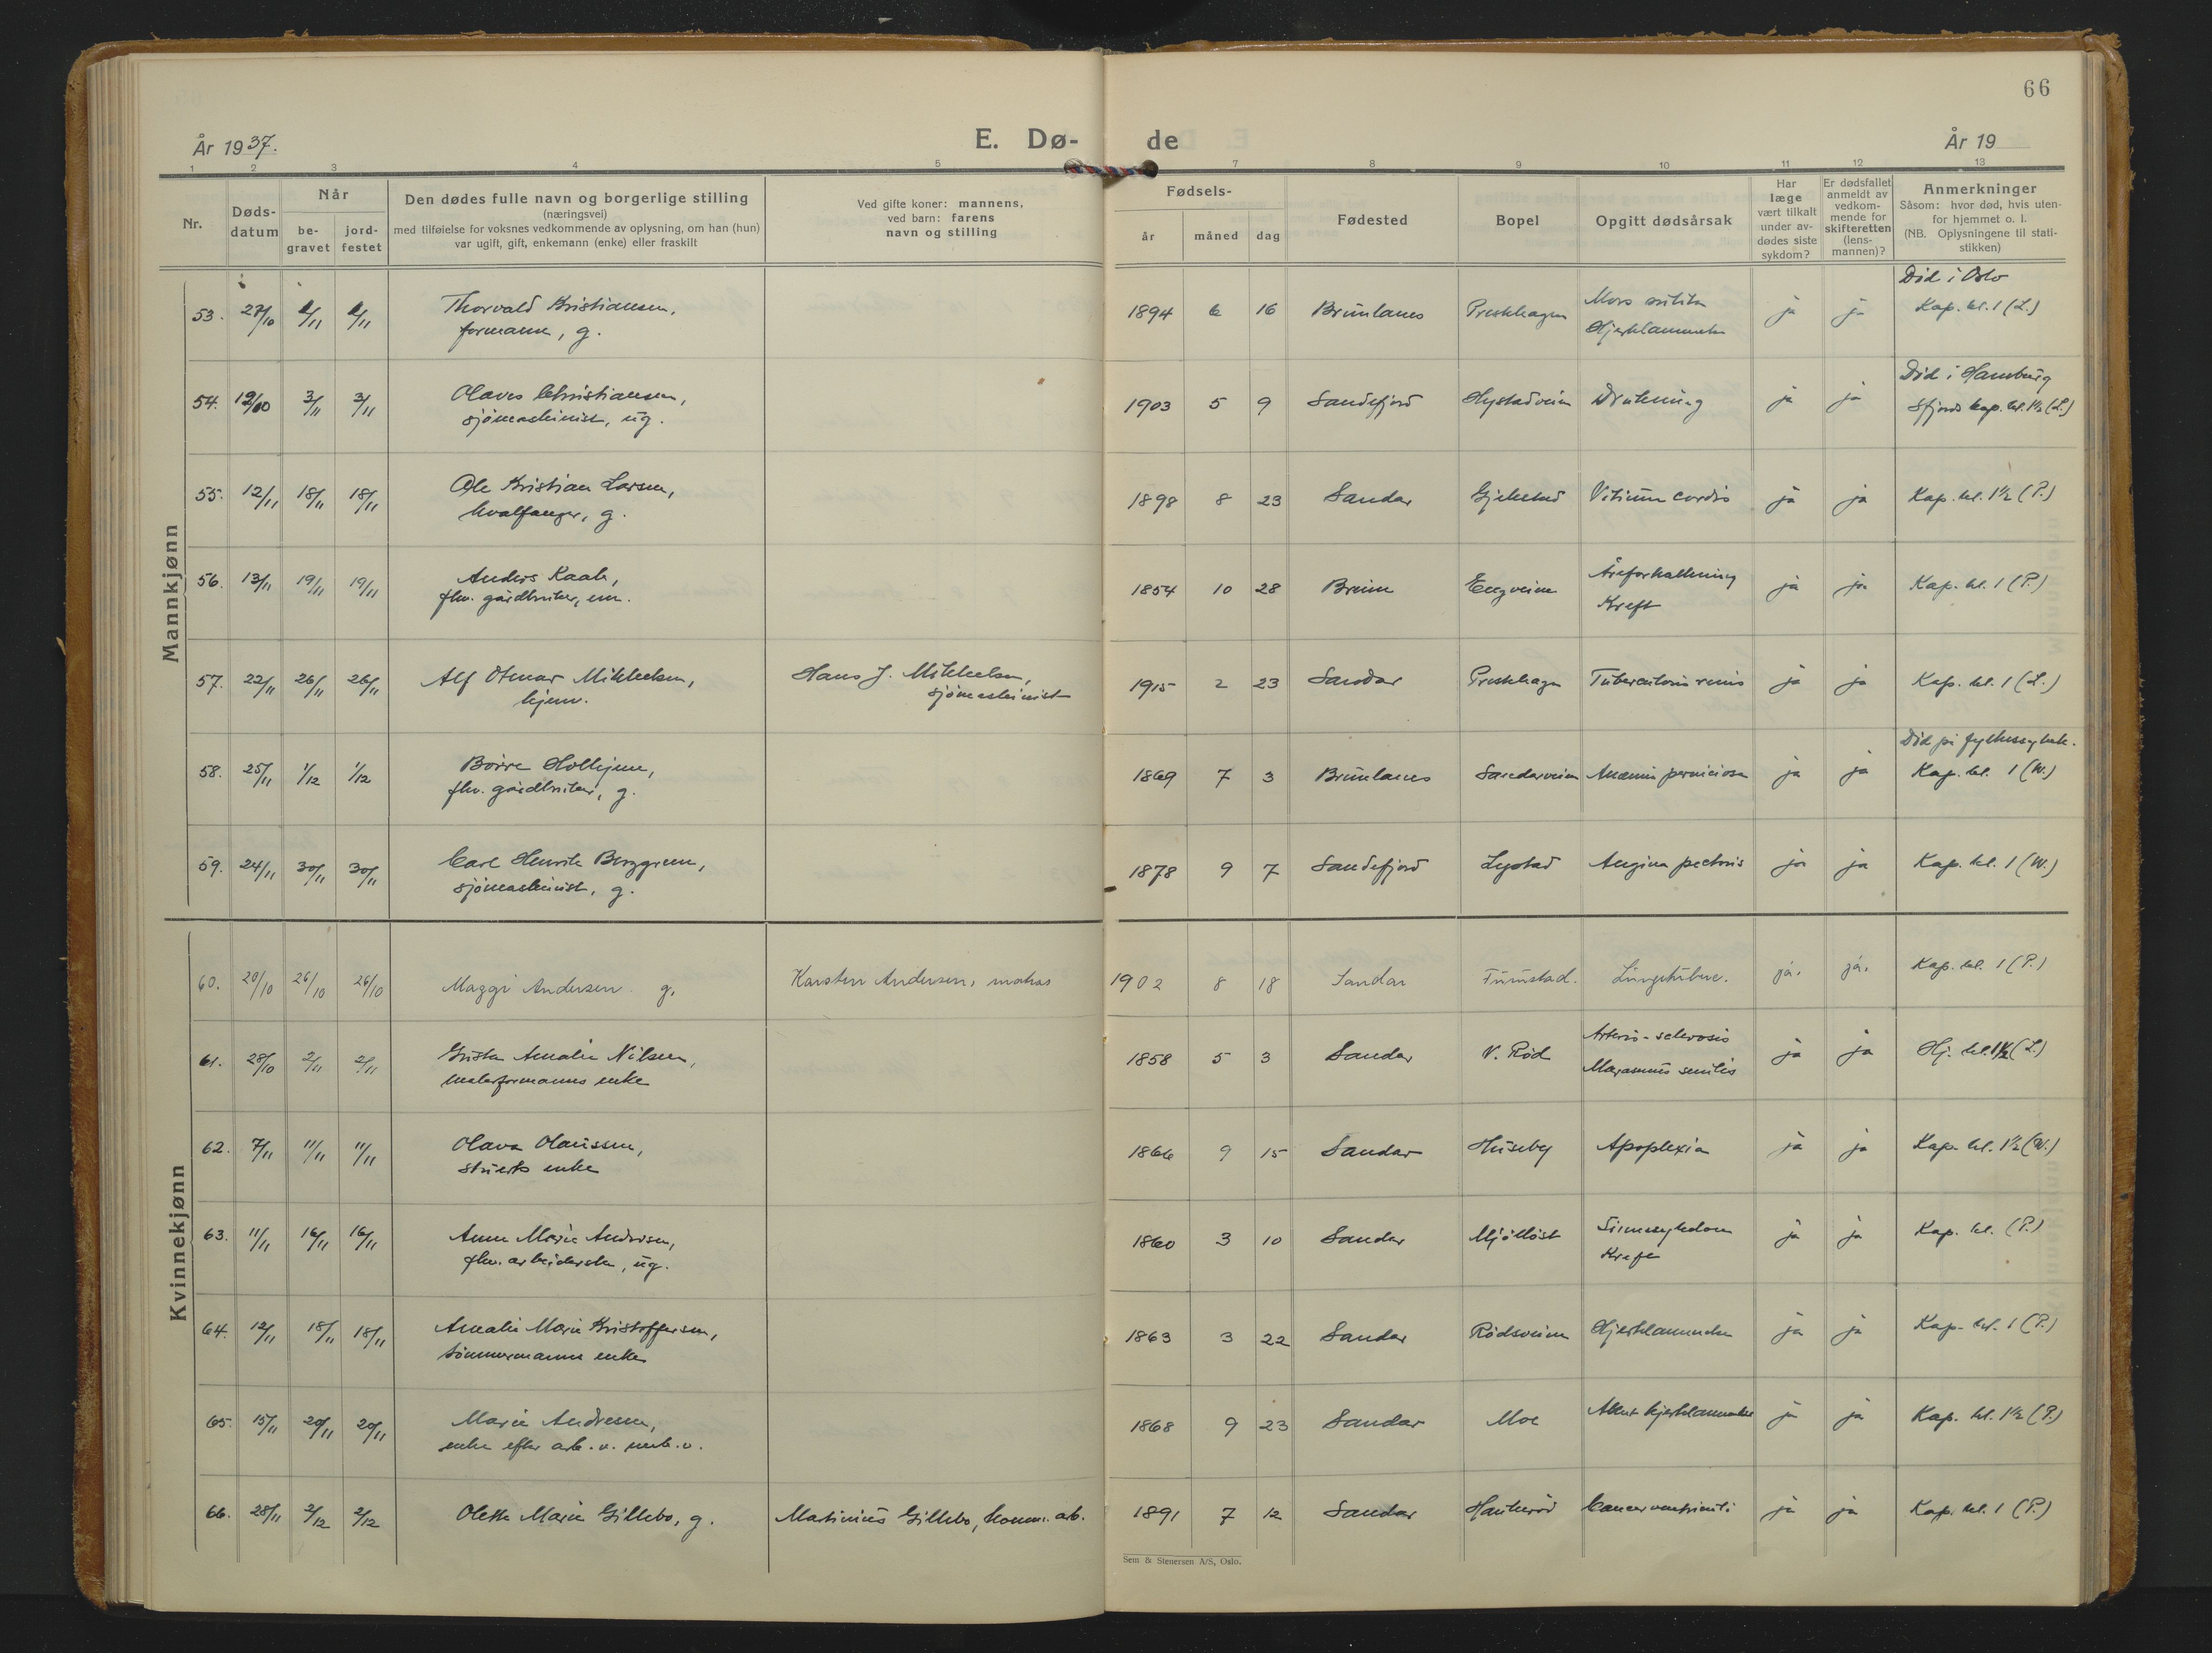 66
År 1937.
E. Dø-
de
År 19
1 2 3 4 5 7 8 9 10 11 12 13
Nr.
Døds-
datum
Når
be-
gravet
jord-
festet
Den dødes fulle navn og borgerlige stilling
(næringsvei)
med tilføielse for voksnes vedkommende av oplysning, om han (hun)
var ugift, gift, enkemann (enke) eller fraskilt
Ved gifte koner: mannens,
ved barn: farens
navn og stilling
Fødsels-
år måned dag
Fødested
Bopel
Opgitt dødsårsak
Har
læge
vært tilkalt
under av-
dødes siste
sykdom?
Er dødsfallet
anmeldt av
vedkom-
mende for
skifteretten
(lens-
mannen)?
Anmerkninger
Såsom: hvor død, hvis uten-
for hjemmet o. l.
(NB. Oplysningene til stati-
stikken)
Mannkjønn
Død i Oslo
53. 27/10 2/11 2/11 Thorvald Kristiansen, 1894 6 16 Brunlanes Preskhagen Mors subita ja ja Kap. kl. 1 (L.)
formann, g. Hjerklammelse
Død i Hamburg
54. 3/11 3/11 Olaves Christiansen, 1903 5 9 Sandefjord Hystadveien Drukning ja ja Sfjords kap. kl. 1½ (L.)
sjømaskinist, ug.
55. 12/11 18/11 18/11 Ole Kristian Larsen, 1898 8 23 Sandar Gjekstad Vitium cordis ja ja Kap. kl. 1½ (P.)
hvalfanger, g.
56. 13/11 19/11 19/11 Anders Kaah, 1854 10 28 Engveien Åreforkalkning ja ja Kap. kl. 1 (P.)
fhv. gårdbruker, em. Kreft
57. 22/11 26/11 26/11 Alf Otmar Mikkelsen, Hans J. Mikkelsen, 1915 2 23 Sandar Preskhagen Tuberculosis renis ja ja Kap. kl. 1 (L.)
hjemv. sjømaskinist
Død på fylkessykeh.
58. 25/11 1/12 1/12 Børre Holhjem, 1869 7 3 Brunlanes Sandarveien Anæmia perniciosa ja ja Kap. kl. 1 (W.)
fhv. gårdbruker, g.
59. 24/11 30/11 30/11 Carl Henrik Berggren, 1878 9 7 Sandefjord Lystad Angina pectoris ja ja Kap. kl. 1 (W.)
sjømaskinist, g.
Kvinnekjønn
60. 20/10 26/10 26/10 Maggi Andersen g. Karsten Andersen, matros 1902 8 18 Sandar Tumstad. Lungetuberc. ja. ja. Kap. kl. 1 (P.)
61. 28/10 2/11 2/11 Amalie Nilsen, 1858 5 3 Sandar V. Rød Arterio-sclerosis ja ja Hj. kl. 1½ (L.)
malerformanns enke Marasmus senilis
62. 7/11 11/11 11/11 Olava Olaussen, 1866 9 15 Sandar Huseby Apoplexia ja ja Kap. kl. 1½ (W.)
stuerts enke
63. 11/11 16/11 16/11 Anne Marie Andersen, 1860 3 10 Sandar Mjølløst Sinnssykdom ja ja Kap. kl. (P.)
fhv. arbeiderske, ug. Kreft
64. 12/11 18/11 18/11 Amalie Marie Kristoffersen, 1863 3 22 Sandar Rødsveien Hjerklammelse ja ja Kap. kl. 1 (P.)
tømmermanns enke
65. 15/11 20/11 20/11 Marie Andresen, 1868 9 23 Sandar Moe Akut hjerklammelse ja ja Kap. kl. 1½ (P.)
enke efter arb. v. mek. v.
66. 28/11 2/12 2/12 Olette Marie Gillebo, g. Matinius Gillebo, komm. arb. 1891 7 12 Sandar Haukerød Cancer ventriculi ja ja Kap. kl. 1 (P.)
Sem & Stenersen A/S, Oslo.